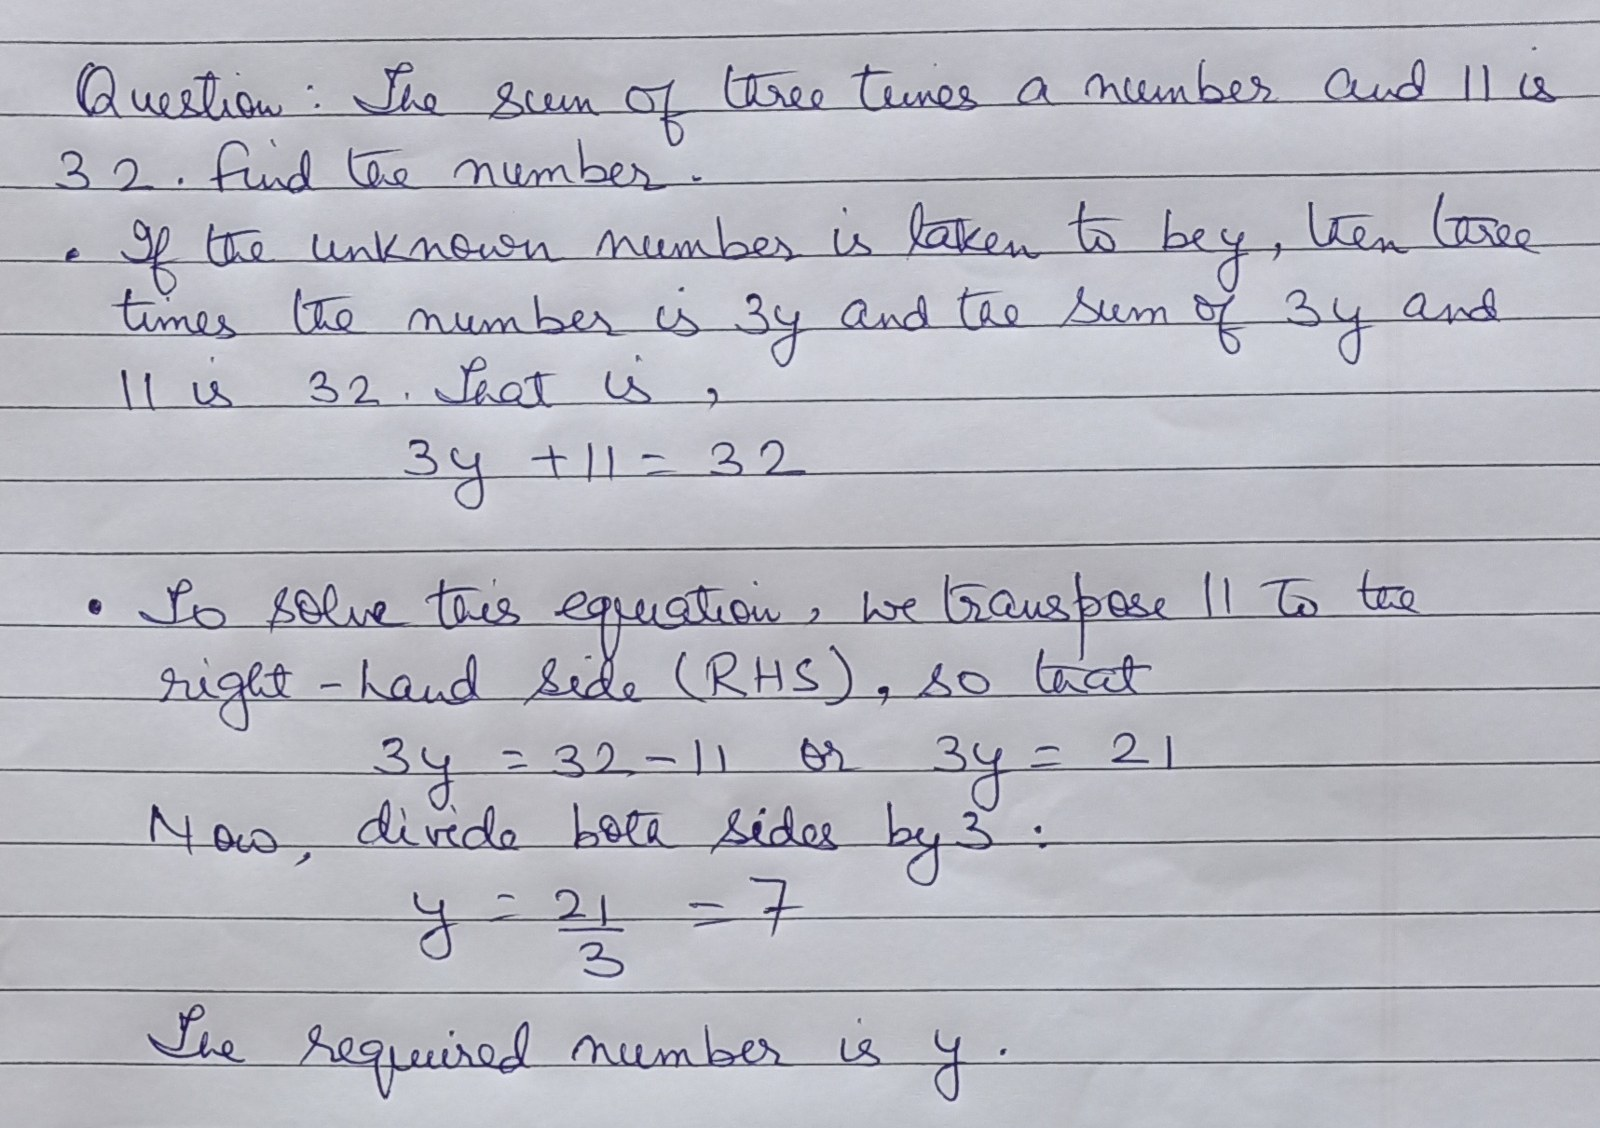 Question : The sum of three times a number and 11 is
32. find the number.
• If the unknown number is taken to be y, then three
times the number is 3y and the sum of 3y and
11 is 32. That is,
3y + 11 = 32
• To solve this equation, we transpose 11 to the
right-hand side (RHS), so that
3y = 32 - 11 or 3y = 21
Now, divide both sides by 3 :
y = 21/3 = 7
The required number is y.